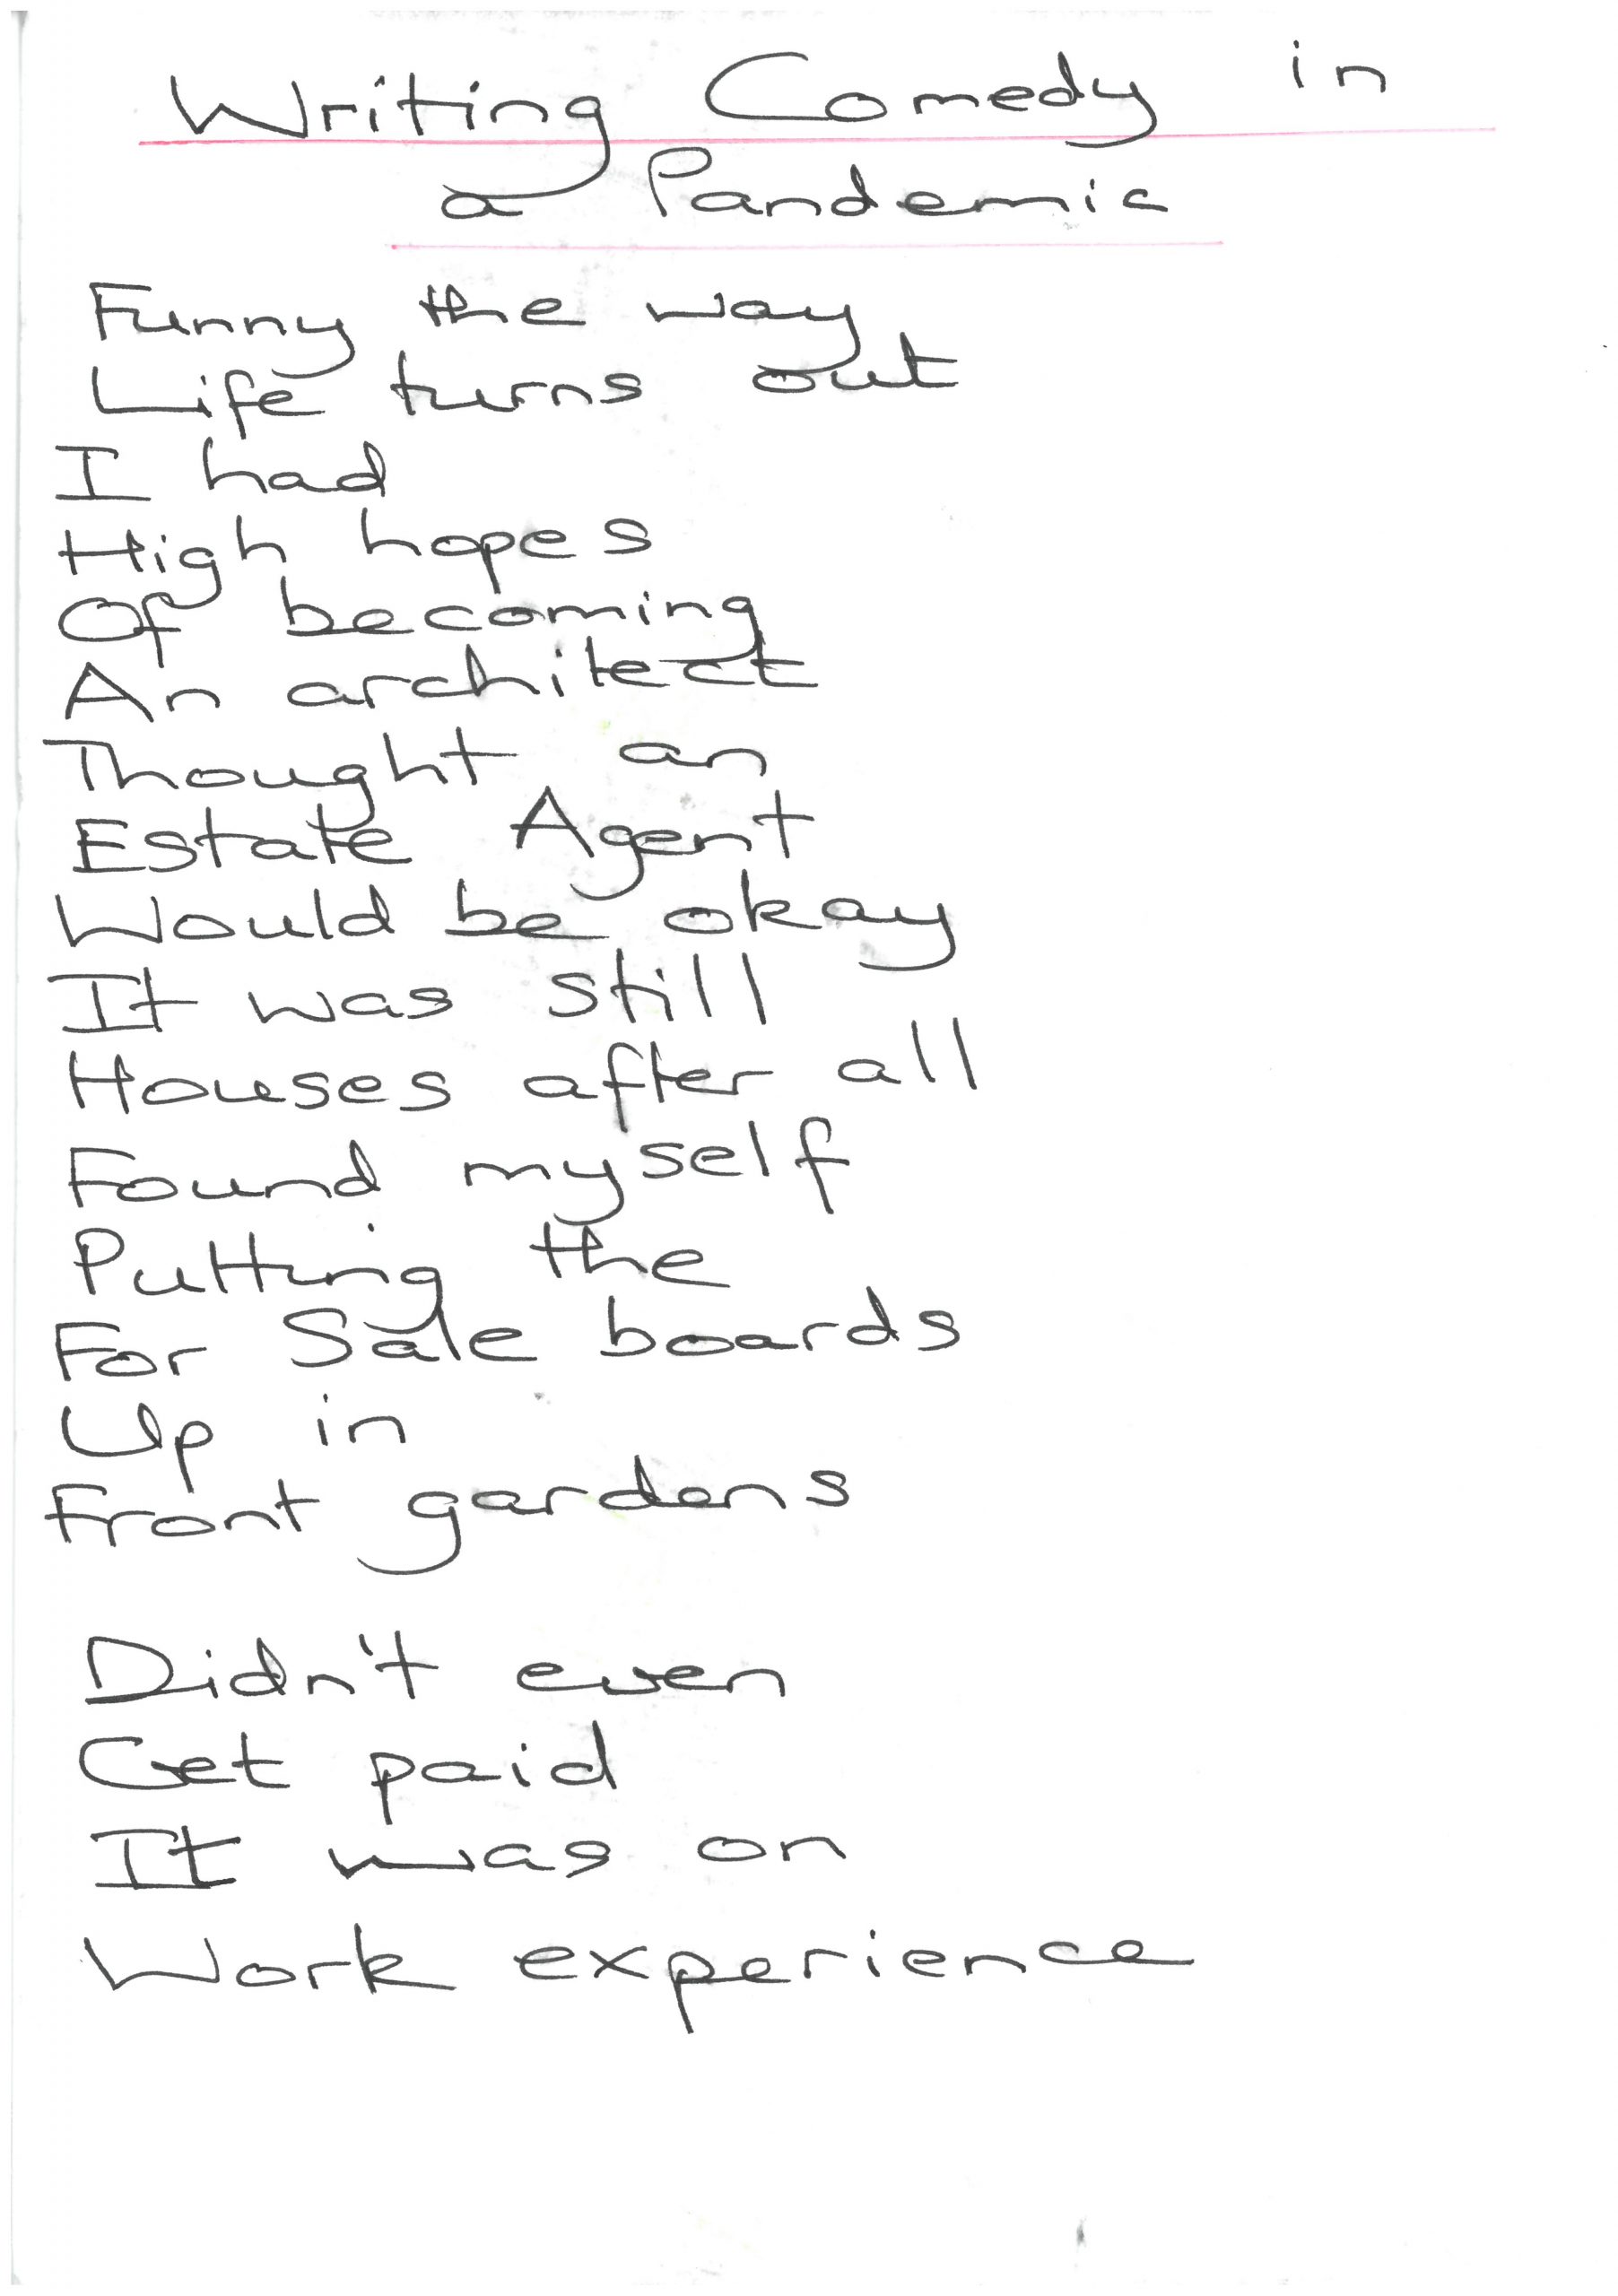 Writing Comedy in
a Pandemic
Funny the way
Life turns out
I had
High hopes
Of becoming
An architect
Thought an
Estate Agent
Would be okay
It was still
Houses after all
Found myself
Putting the
For Sale boards
Up in
Front gardens
Didn't even
Get paid
It was on
Work experience